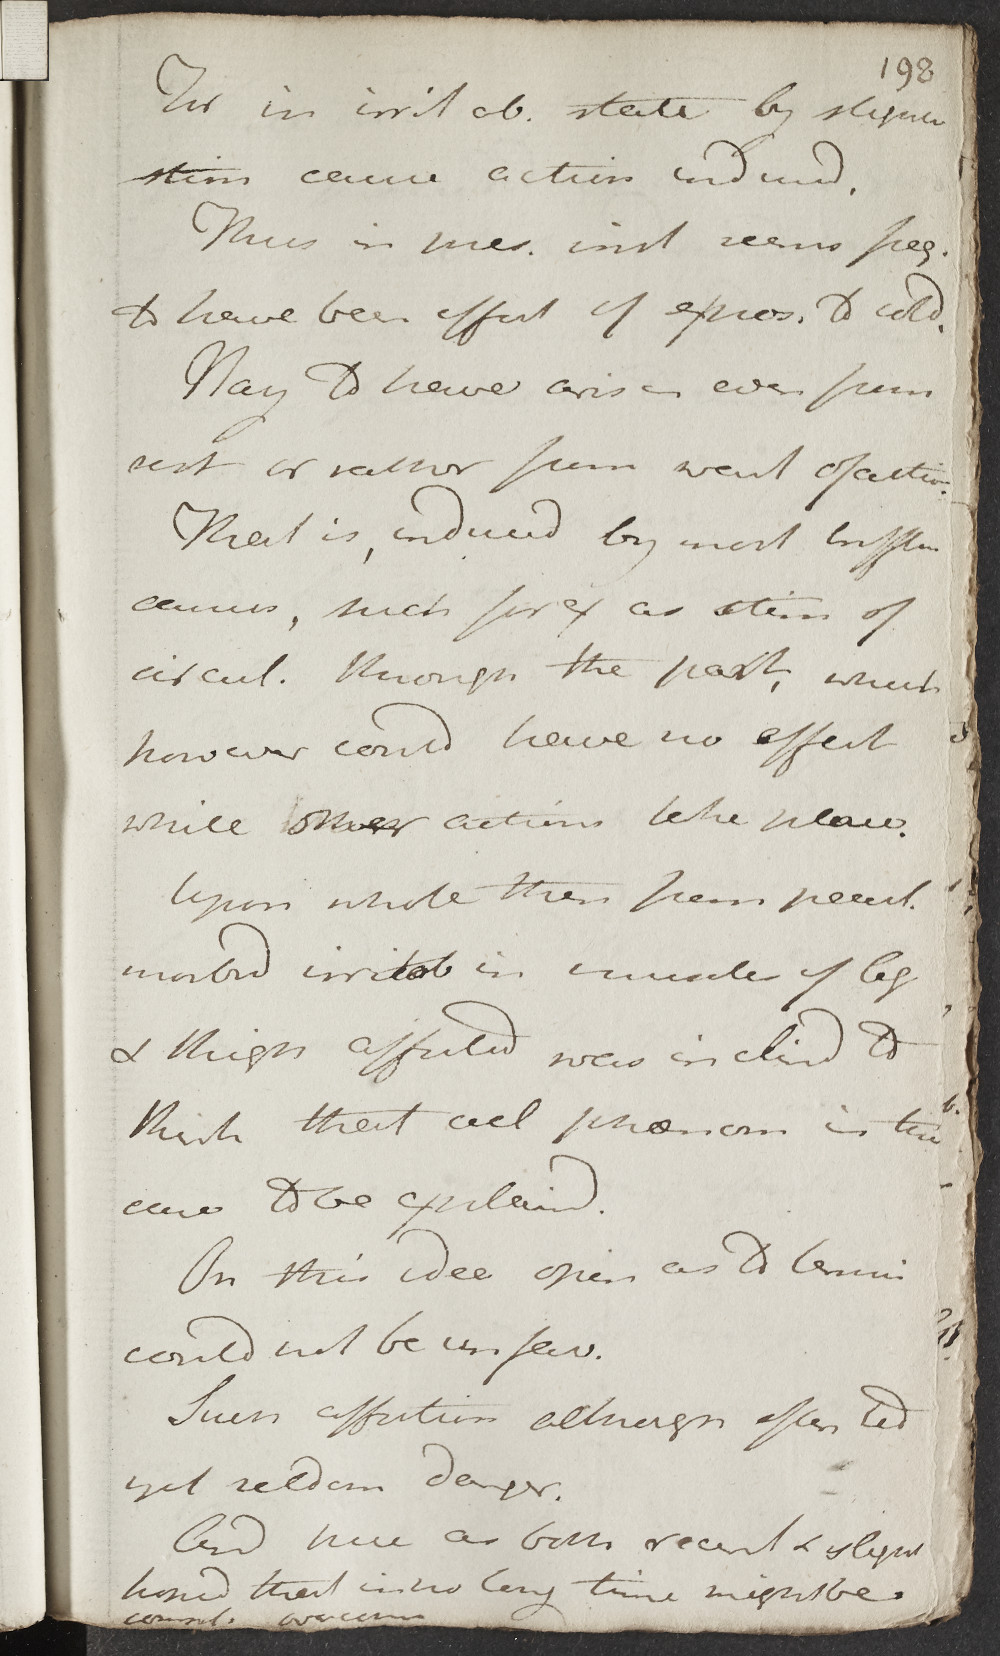 198
For in irritab. state by slightest
stim cause action induced.
Thus in pres. inst seems freq.
to have been effect of expos. to cold.
Nay to have arisen even from
rest or rather from want of action.
That is, induced by most trifling
causes, such for ex as stim of
circul. through the part, which
however could have no effect
while other actions take place.
Upon whole then from pecul.
morbid irritab in muscles of leg
& thigh affected was inclind to
think that all phænom in this
case to be explaind.
On this idea opin as to termin
could not be unfav.
Such affection although often ted
yet seldom danger.
And here as both recent & slight
hoped that in no long time might be
compl. overcome